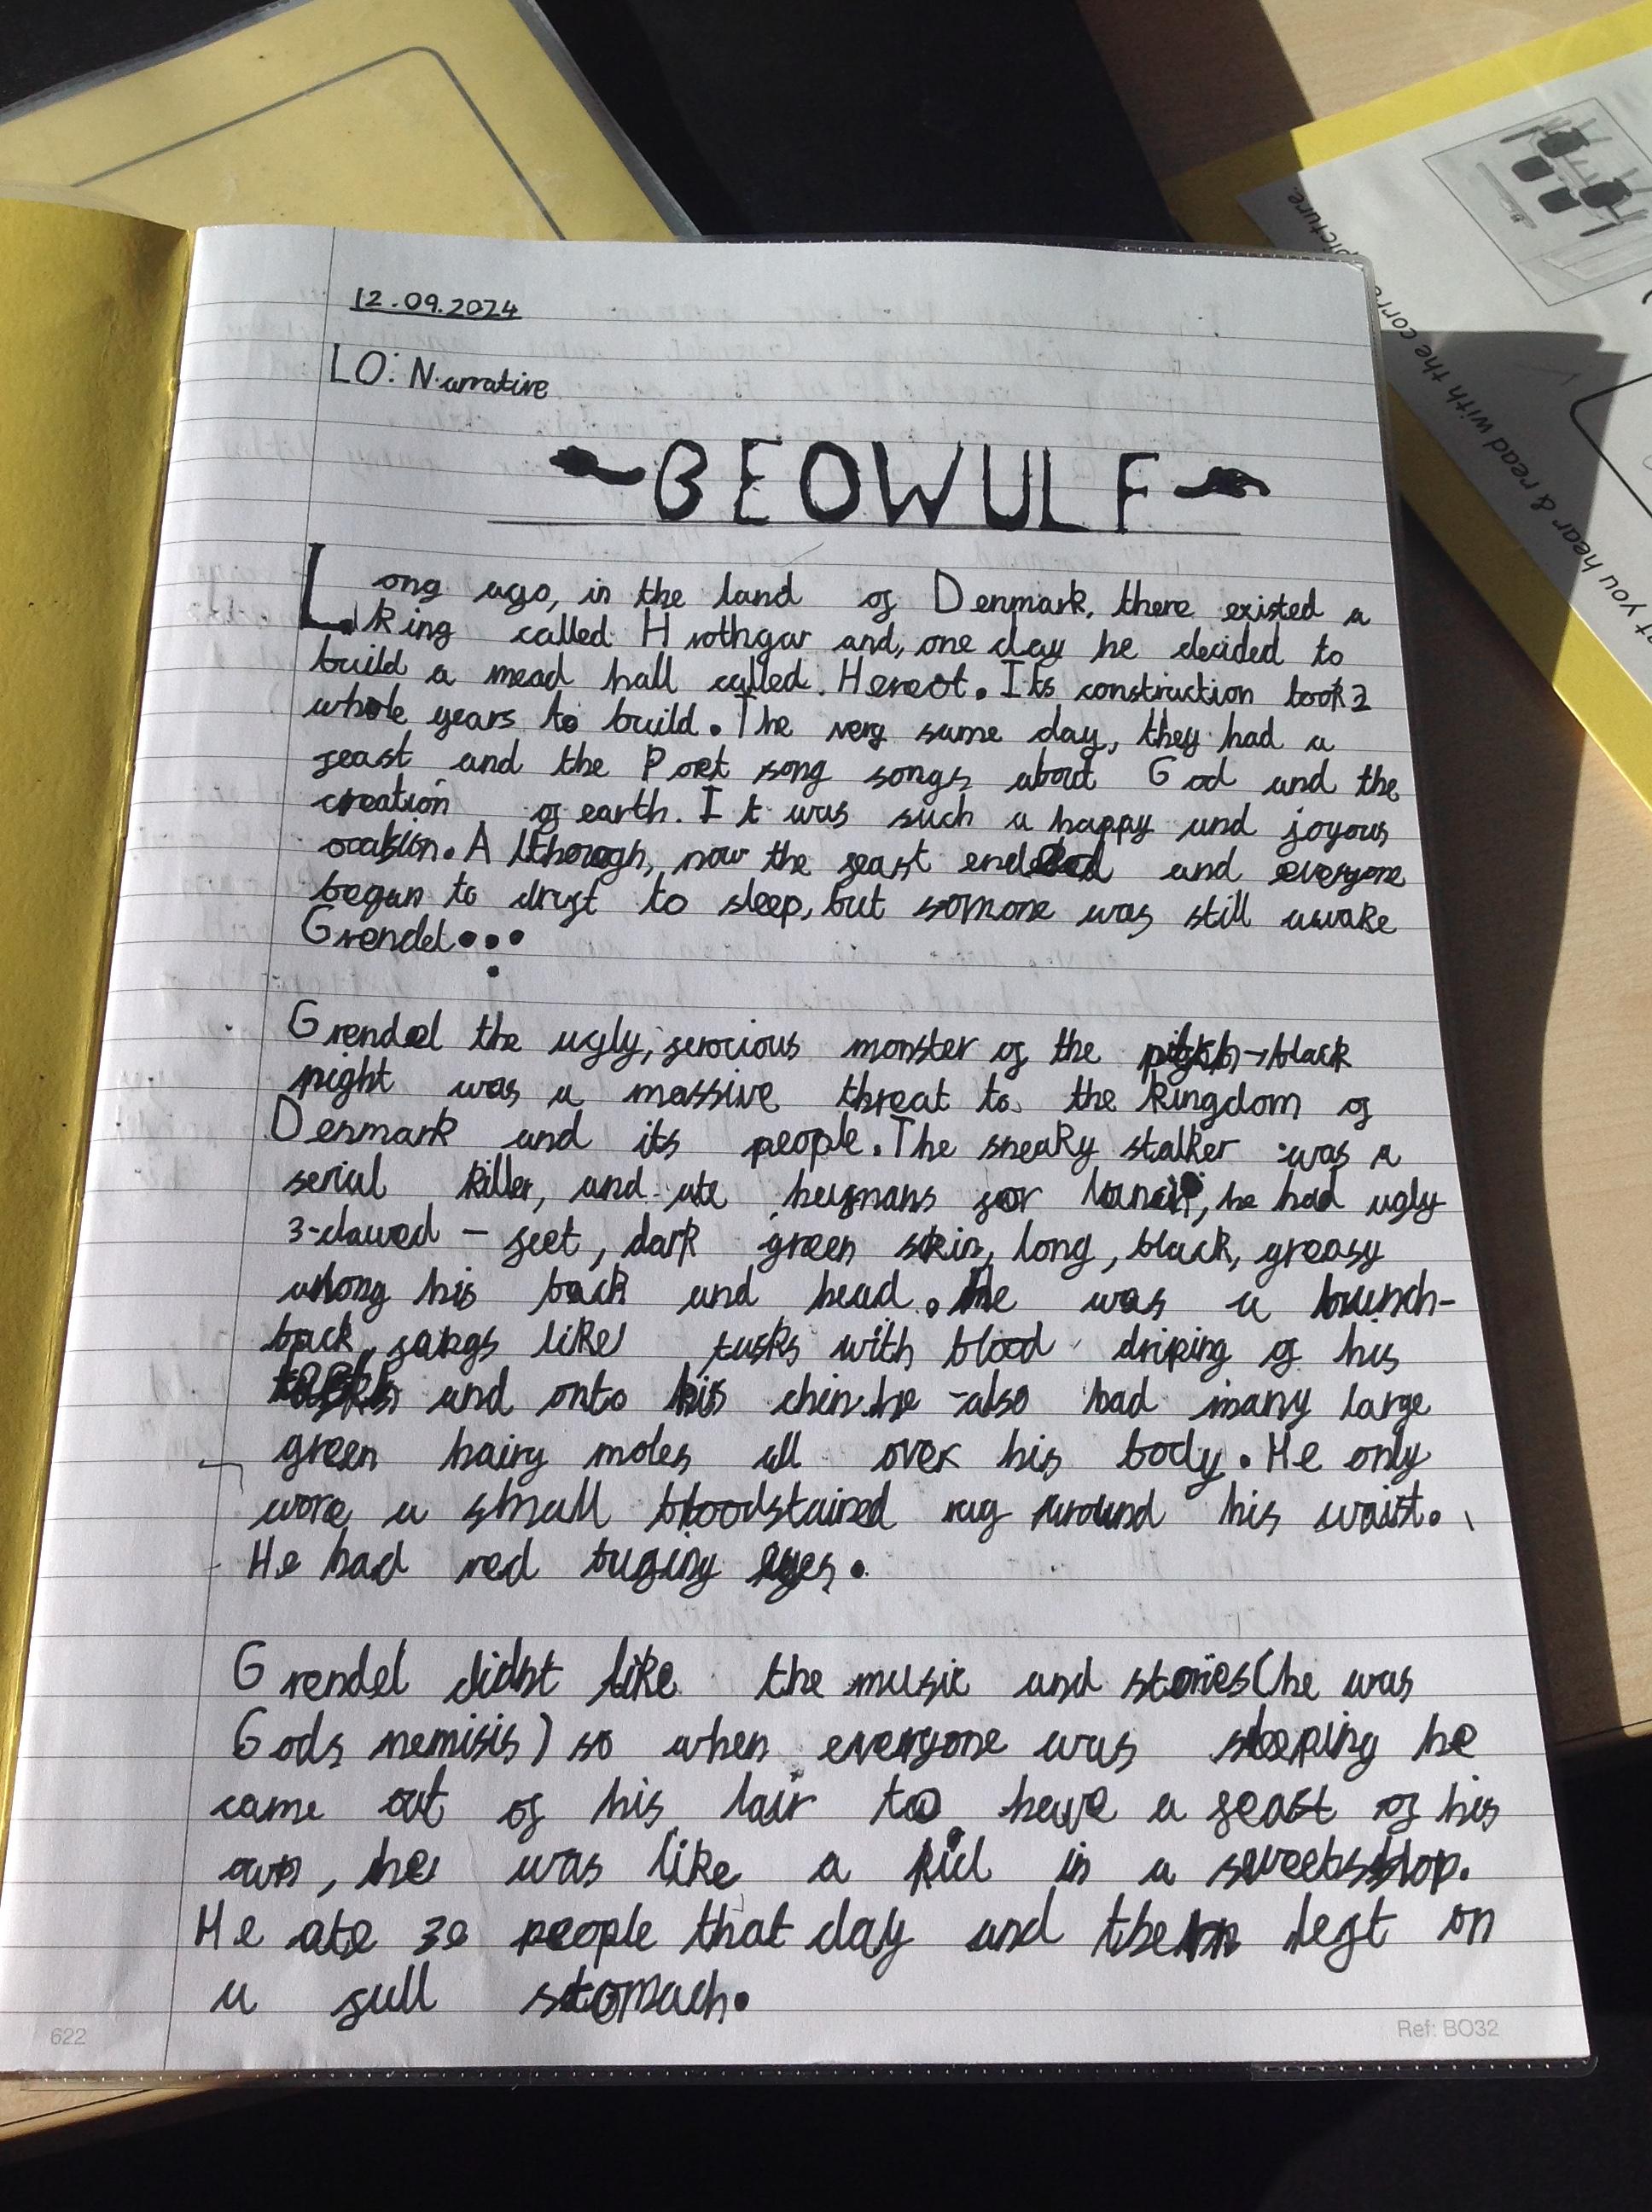 12.09.2024
LO: Narrative
~BEOWULF~
Long ago, in the land of Denmark, there existed a
King called Hrothgar and, one day he decided to
build a mead hall called. Hereot. Its construction took 2
whole years to build. The very same day, they had a
feast and the Poet song songs about God and the
creation of earth. It was such a happy and joyous
ocasion. Although, now the feast ended and everyone
began to drift to sleep, but somone was still awake
Grendel...
Grendel the ugly, ferocious monster of the pitch-black
night was a massive threat to the Kingdom of
Denmark and its people. The sneaky stalker was a
serial killer, and ate humans for lunch, he had ugly
3-clawed - feet, dark green skin, long, black, greasy
along his back and head. He was a hunch-
back, fangs like tusks with blood driping of his
and onto his chin. he also had many large
green hairy moles all over his body. He only
wore a small bloodstained rag around his waist.
He had red buging eyes.
Grendel didnt like the music and stories (he was
Gods nemisis) so when everyone was sleeping he
came out of his lair to have a feast of his
own, he was like a kid in a sweetsshop.
He ate 30 people that day and then left on
a full stomach.
622
Ref: BO32
picture.
t you hear & read with the corre